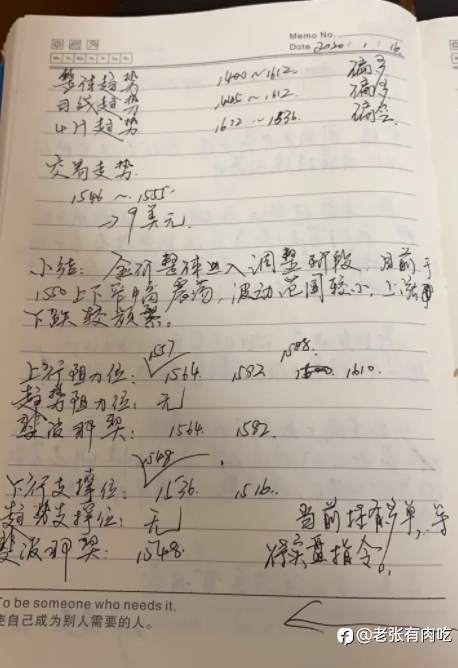 Memo No.
Date 2020 1. 16
Mo Tu We Th Fr Sa Su
整体趋势 1400～1612. 偏多
日线趋势 1445～1612 偏多
4小时趋势 1612～1536. 偏空
交易走势.
1546 ～ 1555.
→9美元.
小结: 金价整体进入调整阶段, 目前于
1550上下窄幅震荡, 波动范围较小, 上涨
下跌较频繁。
1557 1588.
上行阻力位: 1564. 1582 1610.
趋势阻力位: 无
斐波那契: 1564. 1582.
1548.
下行支撑位: 1536. 1516.
趋势支撑位: 无 当前持有多单, 等
斐波那契: 1548. 待实盘指令。
To be someone who needs it.
使自己成为别人需要的人。
@老张有肉吃